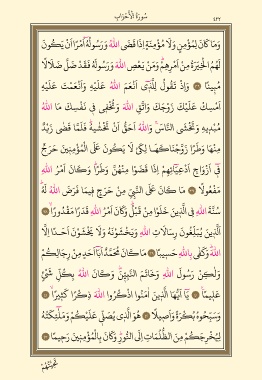 سُورَةُ الْأَحْزَابِ
٤٢٢
وَمَا كَانَ لِمُؤْمِنٍ وَلَا مُؤْمِنَةٍ اِذَا قَضَى اللّٰهُ وَرَسُولُهُٓ اَمْرًا اَنْ يَكُونَ
لَهُمُ الْخِيَرَةُ مِنْ اَمْرِهِمْ وَمَنْ يَعْصِ اللّٰهَ وَرَسُولَهُ فَقَدْ ضَلَّ ضَلَالًا
مُبِينًا ﴿٣٦﴾ وَاِذْ تَقُولُ لِلَّذِٓي اَنْعَمَ اللّٰهُ عَلَيْهِ وَاَنْعَمْتَ عَلَيْهِ
اَمْسِكْ عَلَيْكَ زَوْجَكَ وَاتَّقِ اللّٰهَ وَتُخْفِي فِي نَفْسِكَ مَا اللّٰهُ
مُبْدِيهِ وَتَخْشَى النَّاسَ وَاللّٰهُ اَحَقُّ اَنْ تَخْشٰيهُ فَلَمَّا قَضٰى زَيْدٌ
مِنْهَا وَطَرًا زَوَّجْنَاكَهَا لِكَيْ لَا يَكُونَ عَلَى الْمُؤْمِنِينَ حَرَجٌ
فِٓي اَزْوَاجِ اَدْعِيَٓائِهِمْ اِذَا قَضَوْا مِنْهُنَّ وَطَرًا وَكَانَ اَمْرُ اللّٰهِ
مَفْعُولًا ﴿٣٧﴾ مَا كَانَ عَلَى النَّبِيِّ مِنْ حَرَجٍ فِيمَا فَرَضَ اللّٰهُ لَهُ
سُنَّةَ اللّٰهِ فِي الَّذِينَ خَلَوْا مِنْ قَبْلُ وَكَانَ اَمْرُ اللّٰهِ قَدَرًا مَقْدُورًا ﴿٣٨﴾
اَلَّذِينَ يُبَلِّغُونَ رِسَالَاتِ اللّٰهِ وَيَخْشَوْنَهُ وَلَا يَخْشَوْنَ اَحَدًا اِلَّا
اللّٰهَ وَكَفٰى بِاللّٰهِ حَسِيبًا ﴿٣٩﴾ مَا كَانَ مُحَمَّدٌ اَبَٓا اَحَدٍ مِنْ رِجَالِكُمْ
وَلٰكِنْ رَسُولَ اللّٰهِ وَخَاتَمَ النَّبِيِّنَ وَكَانَ اللّٰهُ بِكُلِّ شَيْءٍ
عَلِيمًا ﴿٤٠﴾ يَٓا اَيُّهَا الَّذِينَ اٰمَنُوا اذْكُرُوا اللّٰهَ ذِكْرًا كَثِيرًا ﴿٤١﴾
وَسَبِّحُوهُ بُكْرَةً وَاَصِيلًا ﴿٤٢﴾ هُوَ الَّذِي يُصَلِّي عَلَيْكُمْ وَمَلٰٓئِكَتُهُ
لِيُخْرِجَكُمْ مِنَ الظُّلُمَاتِ اِلَى النُّورِ وَكَانَ بِالْمُؤْمِنِينَ رَحِيمًا ﴿٤٣﴾
تَحِيَّتُهُمْ